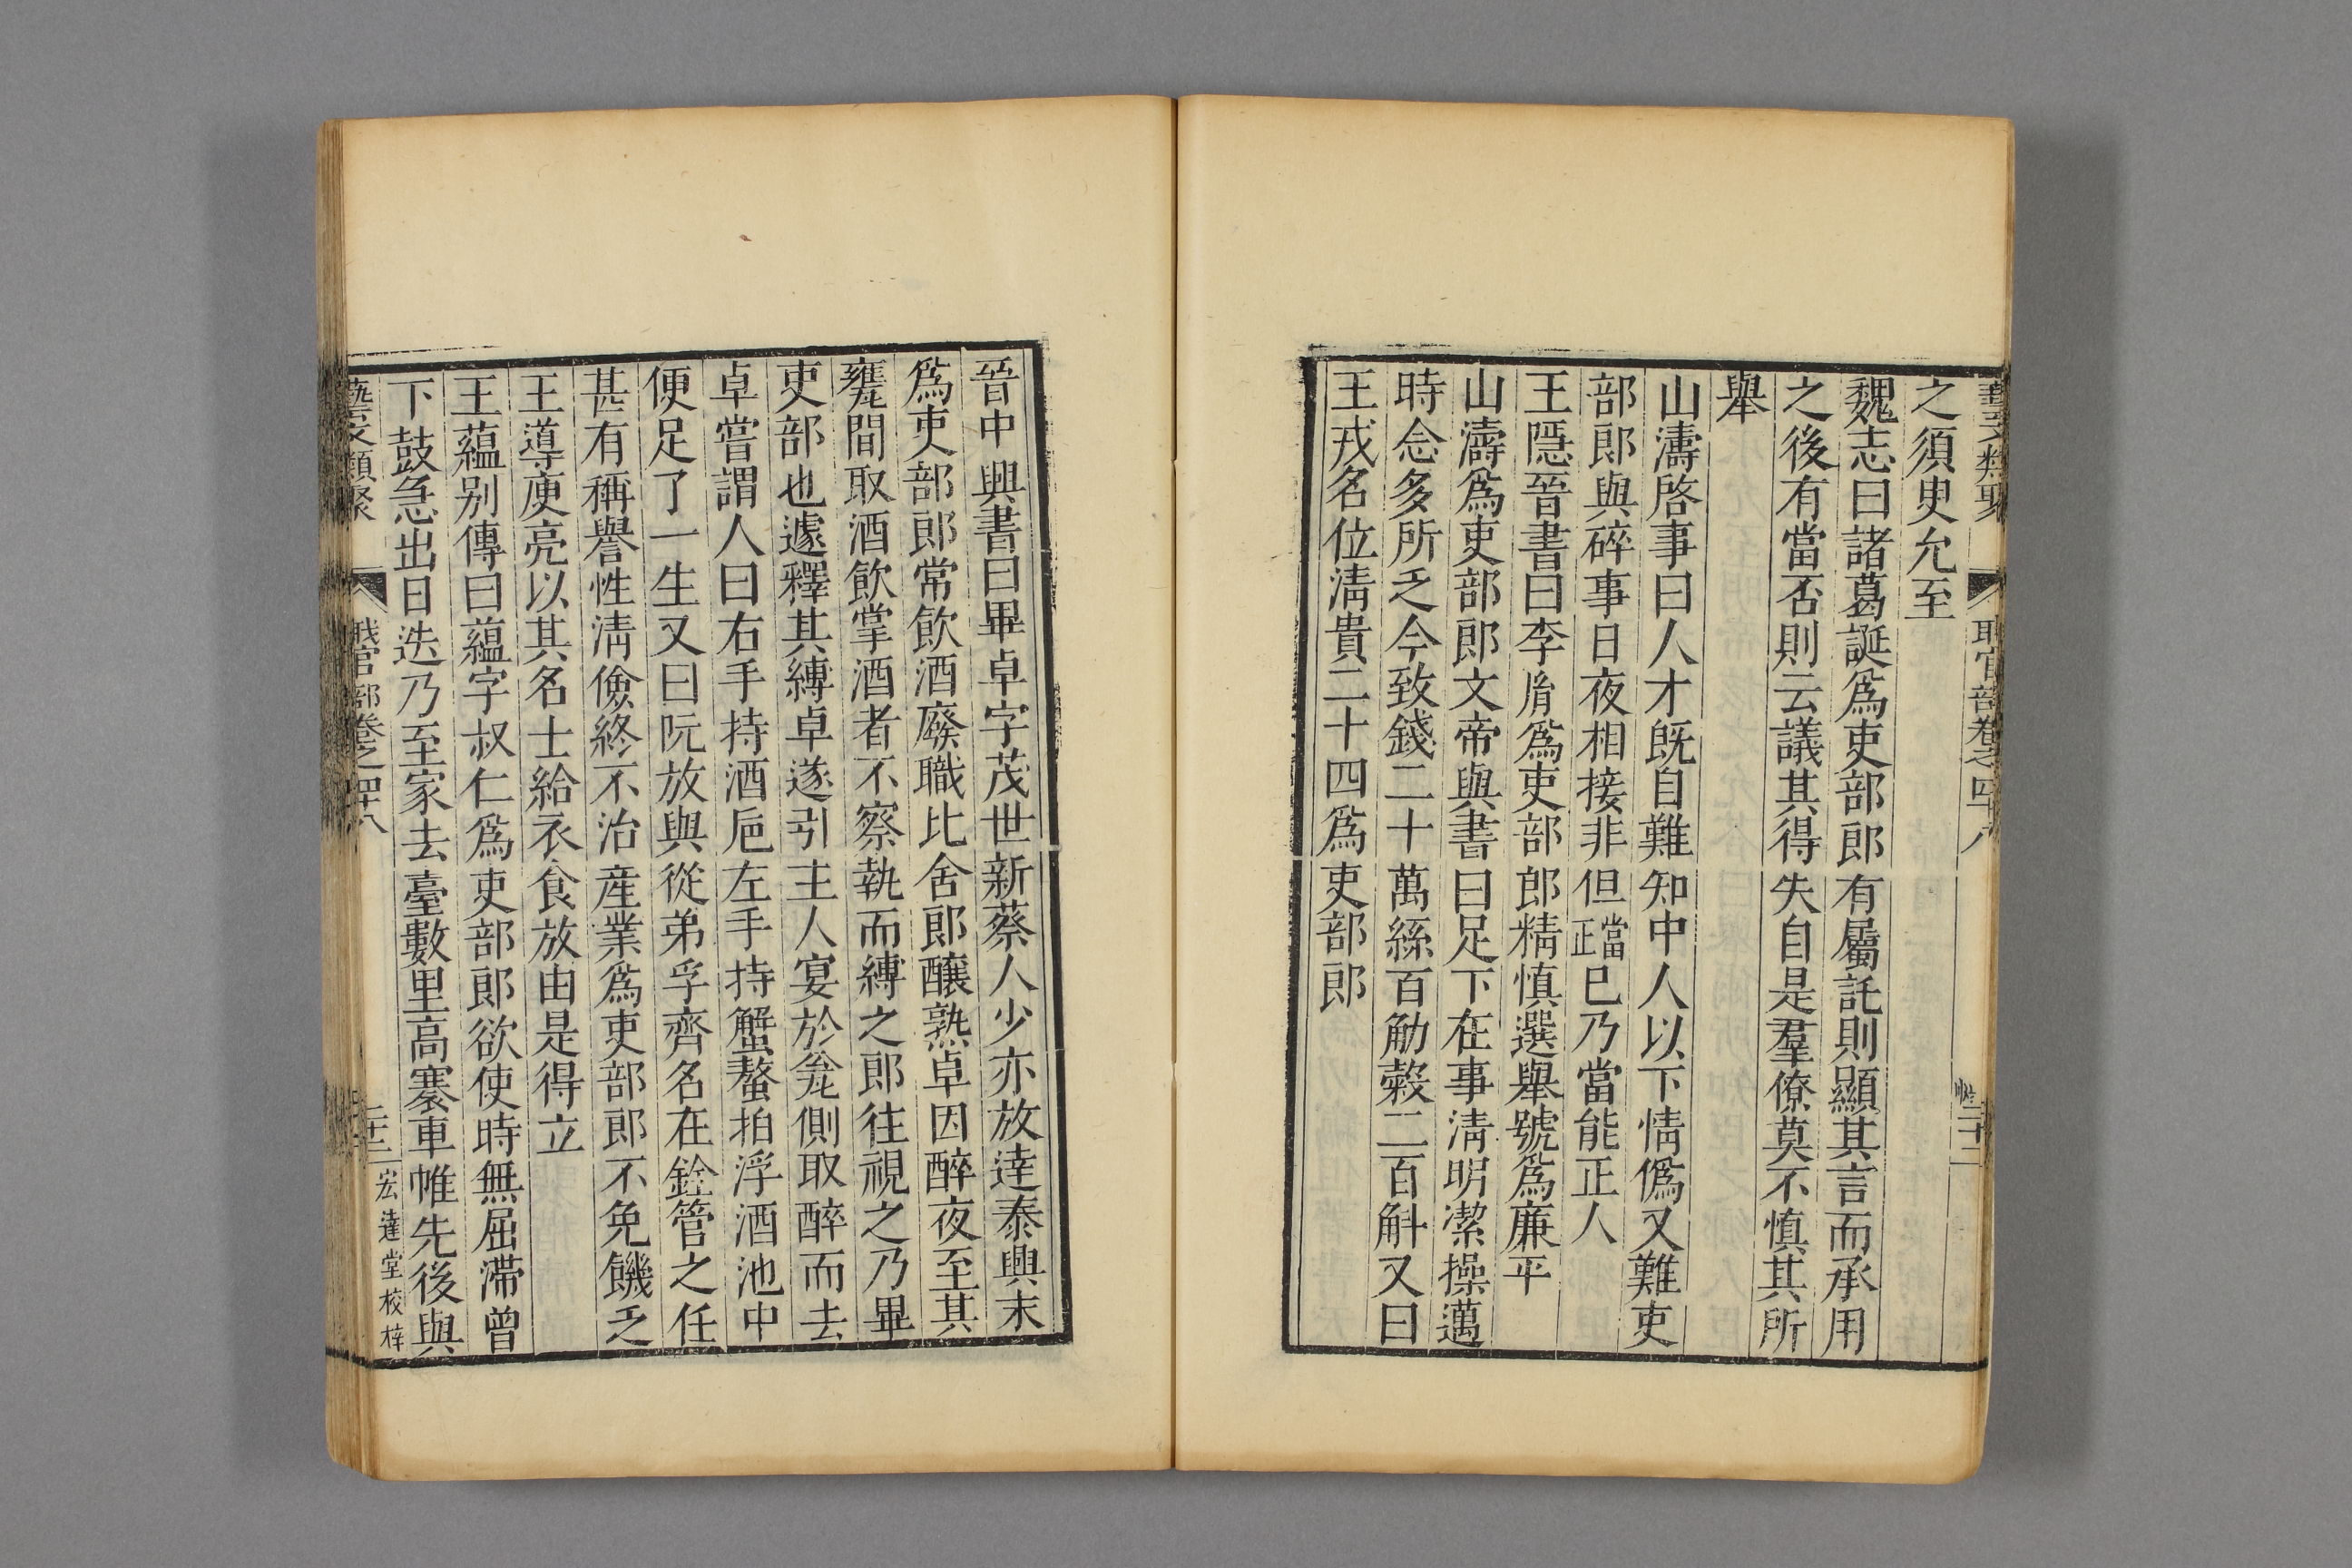 藝文類聚 職官部卷之四十八 二十二
之須臾允至
魏志曰諸葛誕爲吏部郎有屬託則顯其言而承用
之後有當否則云議其得失自是羣僚莫不慎其所
舉
山濤啓事曰人才既自難知中人以下情僞又難吏
部郎與碎事日夜相接非但當正已乃當能正人
王隱晉書曰李𦙍爲吏部郎精慎選舉號爲廉平
山濤爲吏部郎文帝與書曰足下在事清明潔操邁
時念多所乏今致錢二十萬絲百觔穀二百斛又曰
王戎名位清貴二十四爲吏部郎
晉中興書曰畢卓字茂世新蔡人少亦放達泰興末
爲吏部郎常飲酒廢職比舍郎釀熟卓因醉夜至其
甕間取酒飲掌酒者不察執而縛之郎往視之乃畢
吏部也遽釋其縛卓遂引主人宴於瓮側取醉而去
卓嘗謂人曰右手持酒巵左手持蟹螯拍浮酒池中
便足了一生又曰阮放與從弟孚齊名在銓管之任
甚有稱譽性清儉終不治產業爲吏部郎不免饑乏
王導庾亮以其名士給衣食放由是得立
王蘊別傳曰蘊字叔仁爲吏部郎欲使時無屈滯曾
下鼓急出日迭乃至家去臺數里高褰車帷先後與
藝文類聚 職官部卷之四十八 二十三 宏達堂校梓